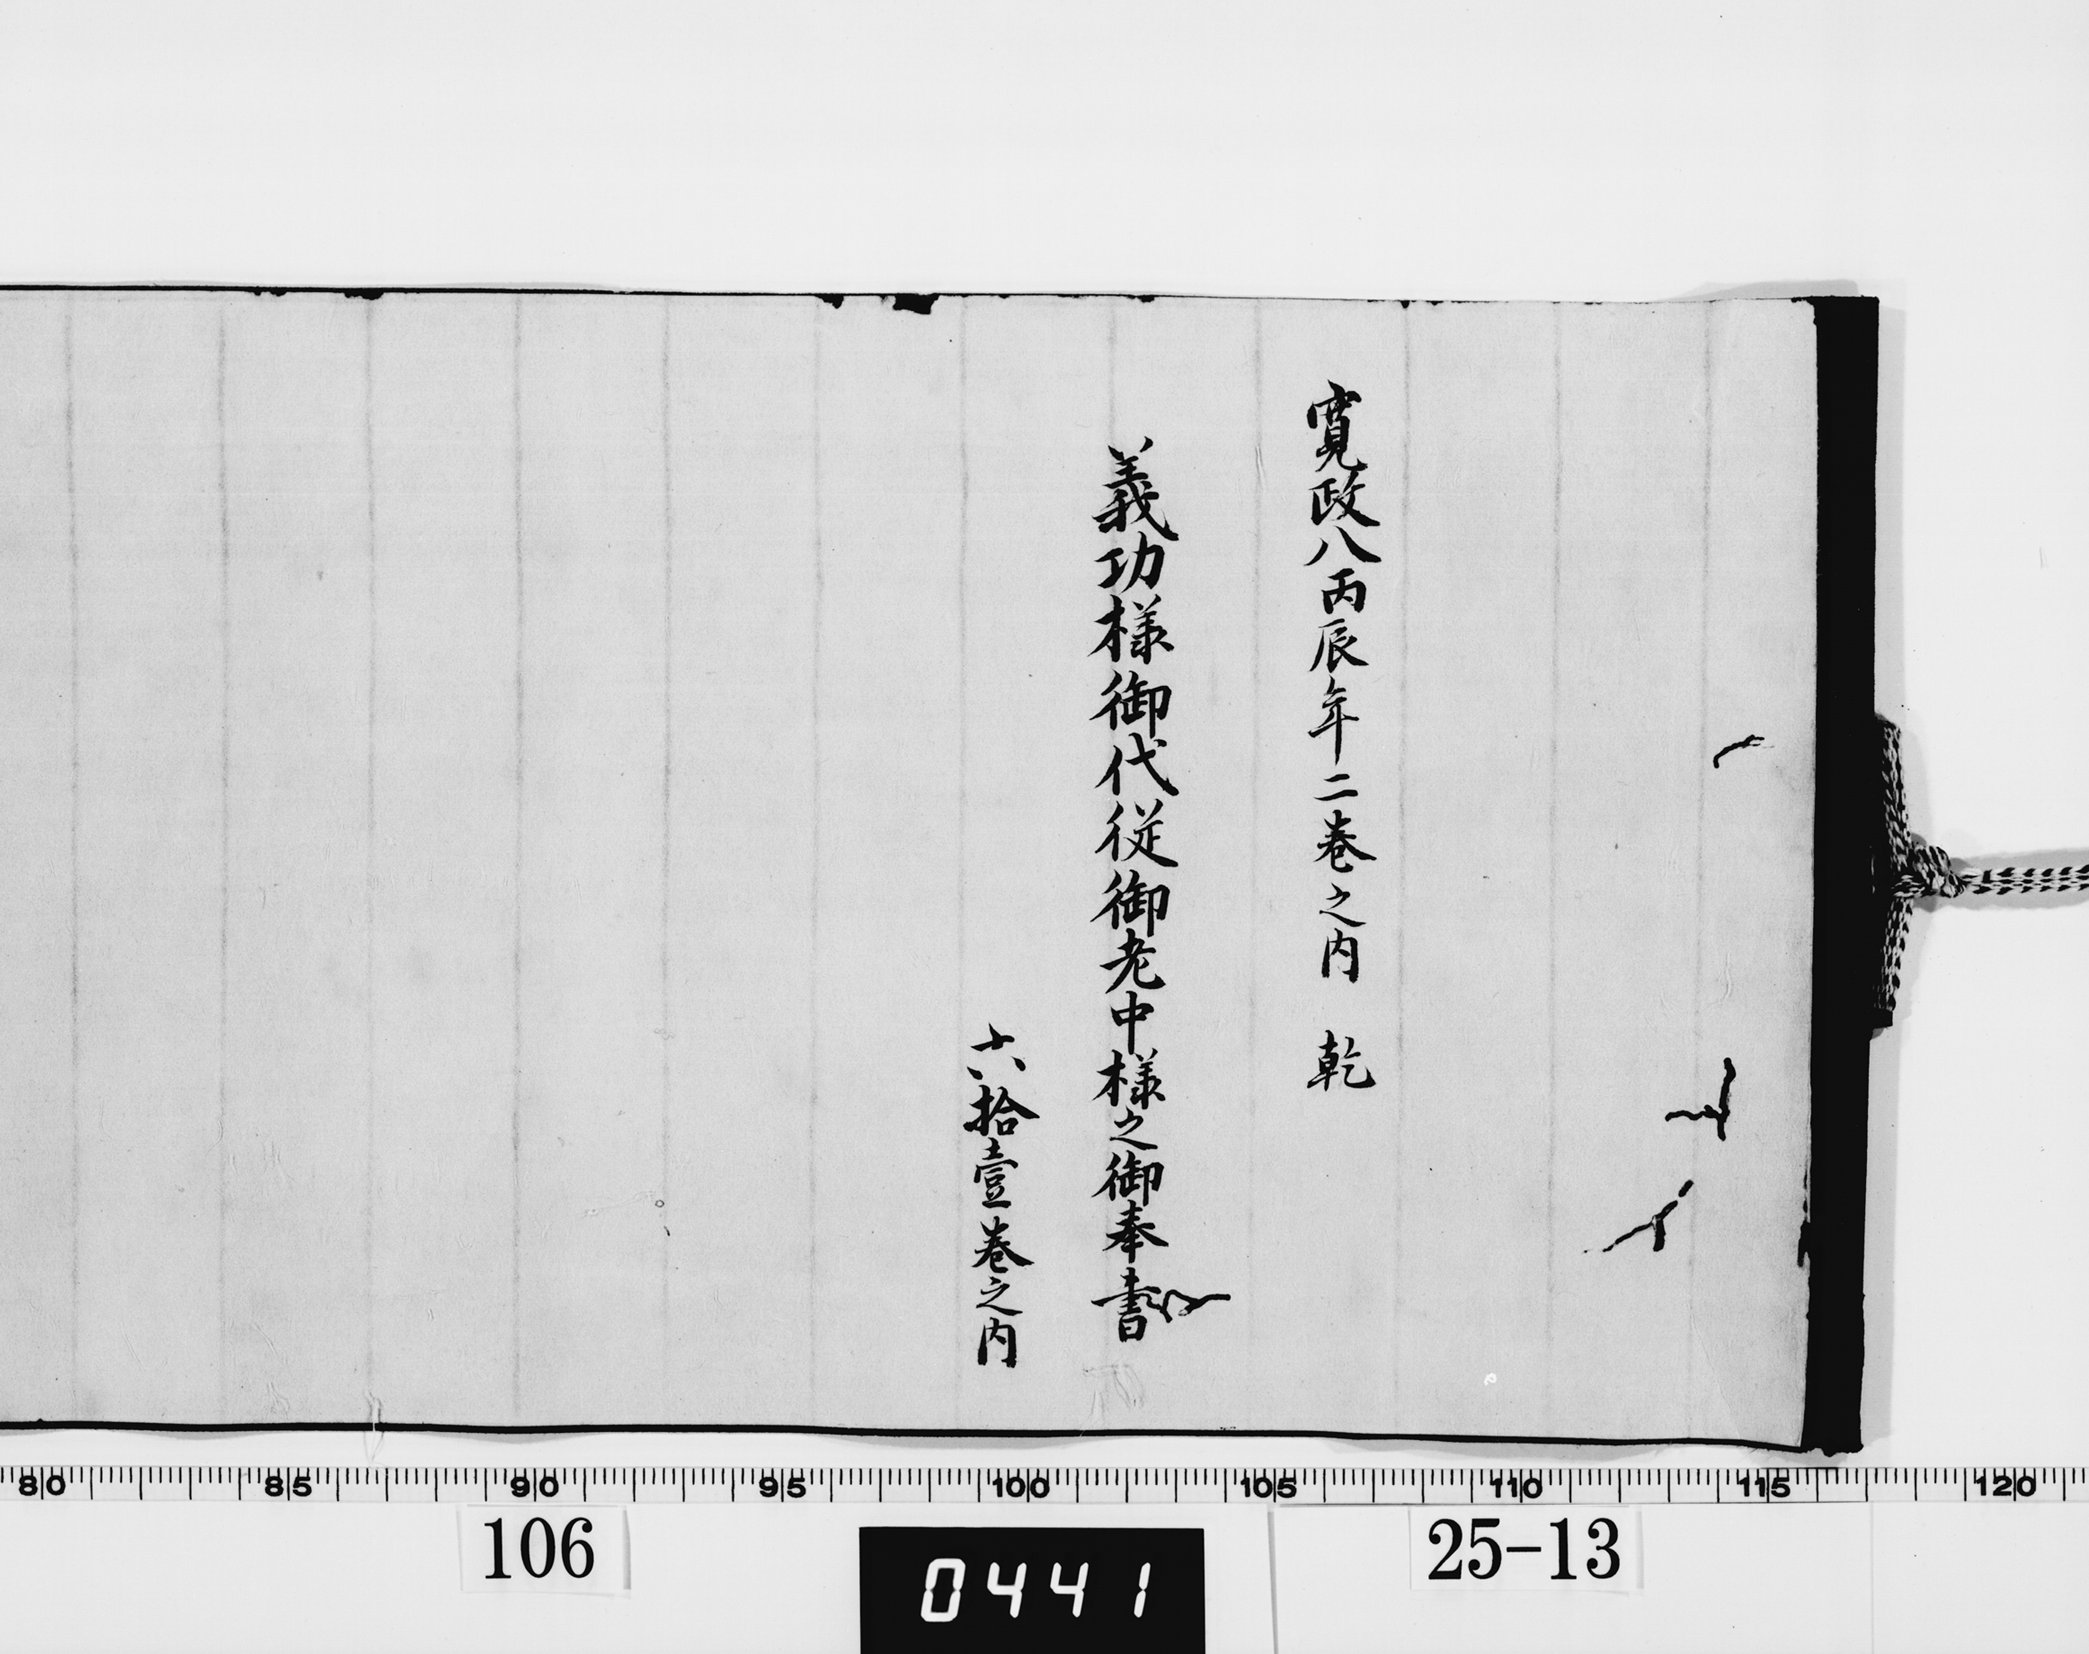 寛政八丙辰年二巻之内　乾
義功様御代従御老中様之御奉書
六拾壹巻之内
80 85 90 95 100 105 110 115 120
106
0441
25-13